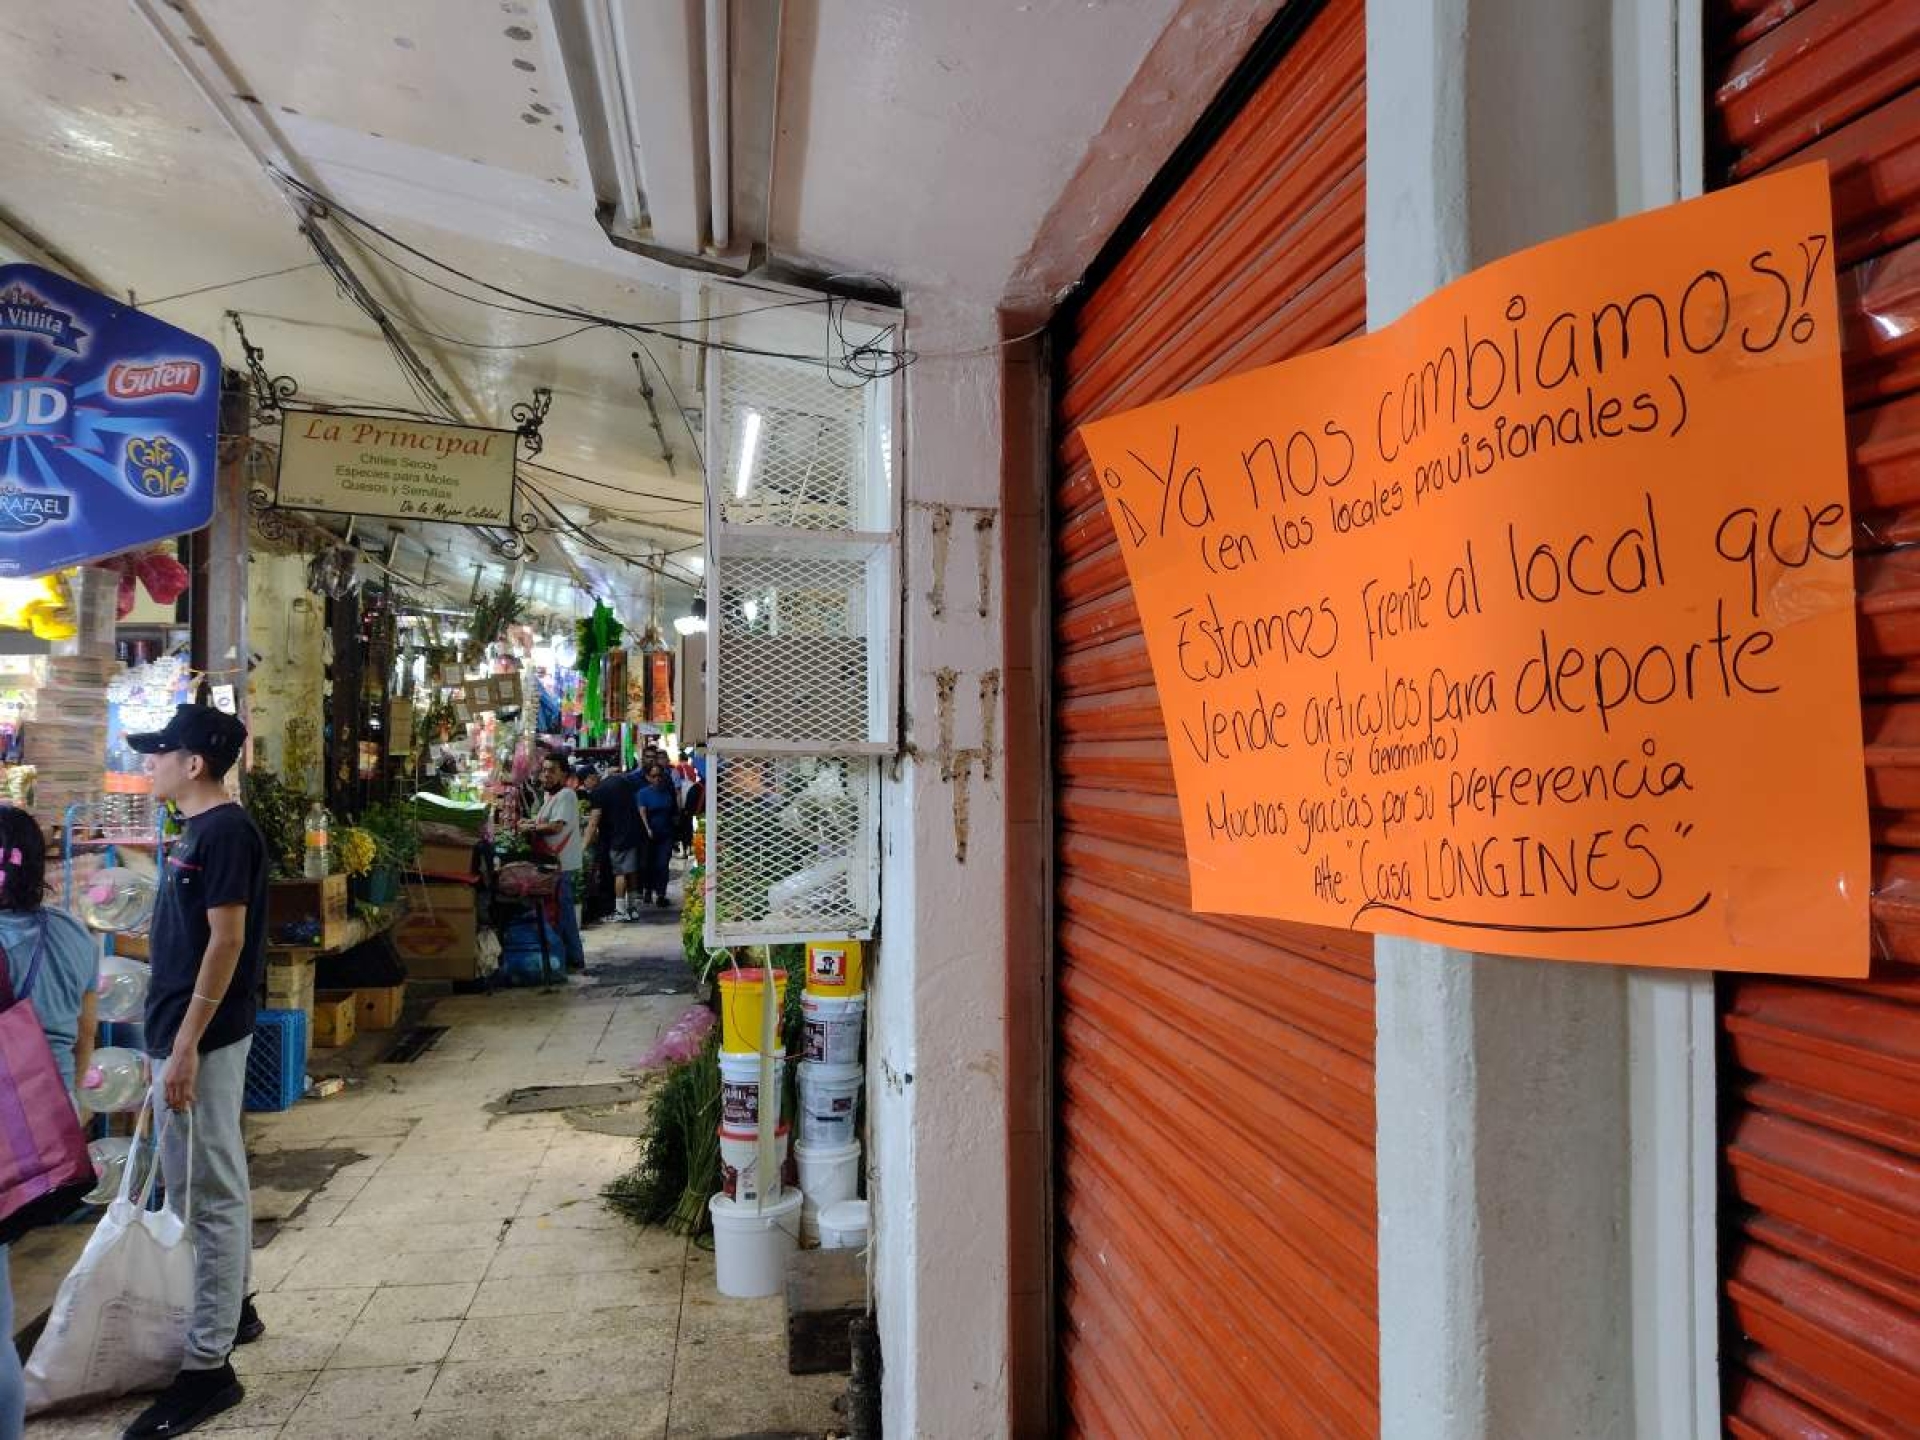 Villita
Guten
UD
Café
Olé
RAFAEL
La Principal
Chiles Secos
Especies para Moles
Quesos y Semillas
De la Mejor Calidad
¡¡Ya nos cambiamos!!
(en los locales provisionales)
Estamos frente al local que
vende articulos para deporte
(sr Gerónimo)
Muchas gracias por su preferencia
Atte: "Casa LONGINES"